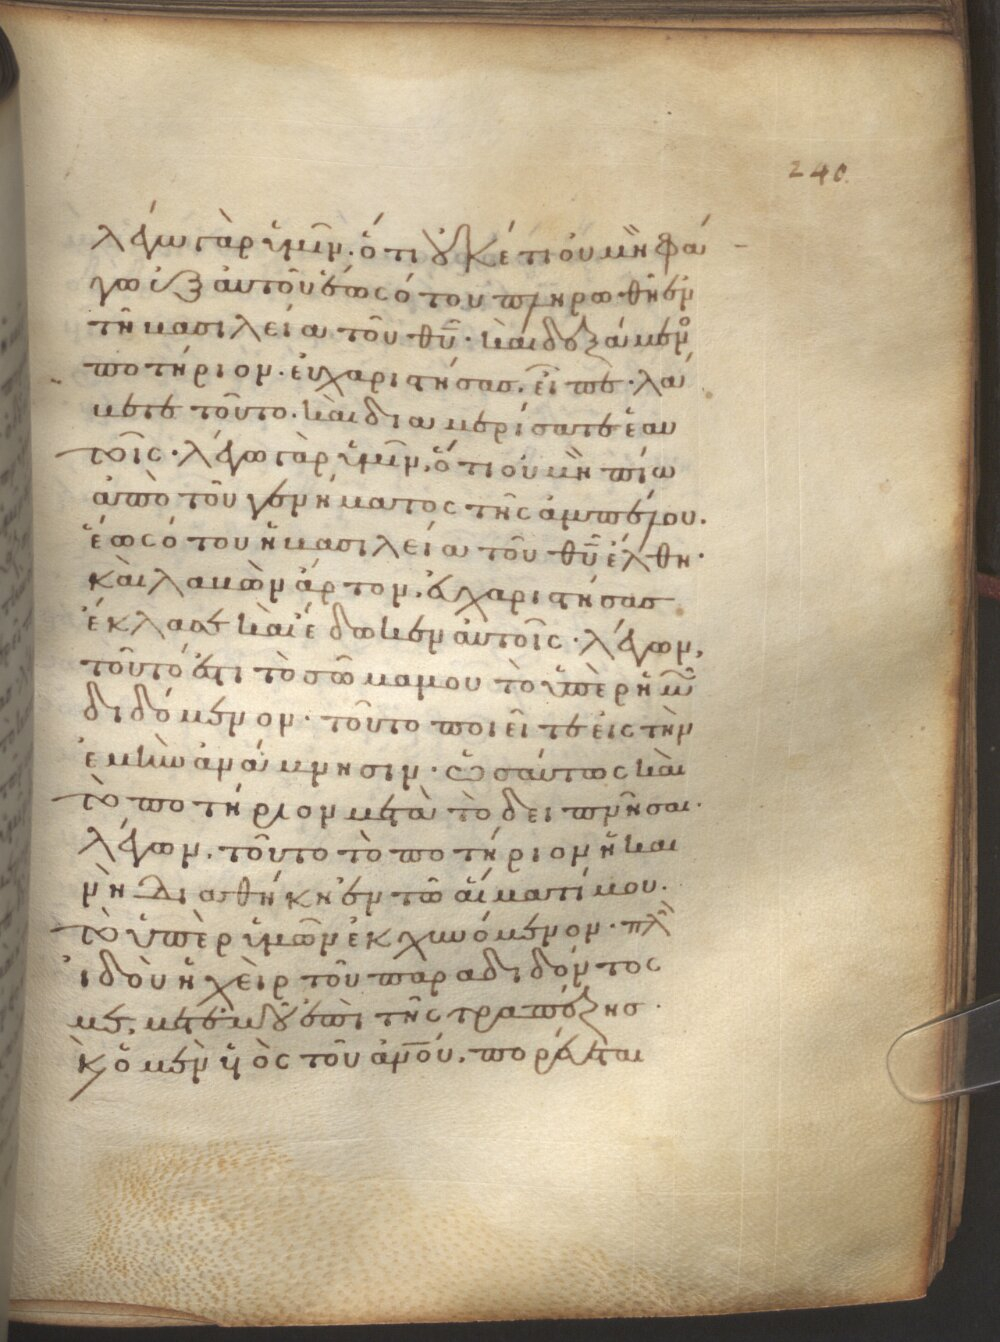 240
λέγω γὰρ ὑμῖν· ὅτι οὐκέτι οὐ μὴ φά
γω ἐξ αὐτοῦ ἕως ὅτου πληρωθῆ ἐν
τῆ βασιλεία τοῦ θῦ· καὶ δεξάμενος
ποτήριον· εὐχαριστήσας, εἶπε· λά
βετε τοῦτο· καὶ διαμερίσατε ἑαυ
τοῖς· λέγω γὰρ ὑμῖν, ὅτι οὐ μὴ πίω
ἀπὸ τοῦ γενήματος τῆς ἀμπέλου·
ἕως ὅτου ἡ βασιλεία τοῦ θῦ ἔλθη·
καὶ λαβὼν ἄρτον, εὐχαριστήσας
ἔκλασε καὶ ἔδωκεν αὐτοῖς· λέγων,
τοῦτό ἐστι τὸ σῶμα μου τὸ ὑπὲρ ἡμῶν
διδόμενον· τοῦτο ποιεῖτε εἰς τὴν
ἐμὴν ἀνάμνησιν· ὡσαύτως καὶ
τὸ ποτήριον μετὰ τὸ δειπνῆσαι·
λέγων, τοῦτο τὸ ποτήριον ἡ και
νὴ διαθήκη ἐν τῶ αἵματί μου·
τὸ ὑπὲρ ὑμῶν ἐκχυνόμενον· πλὴν
ἰδοὺ ἡ χεὶρ τοῦ παραδιδόντος
με, μετ' ἐμοῦ ἐπὶ τῆς τραπέζης·
κ ὁ μὲν ὑιὸς τοῦ ἀνου, πορεύεται